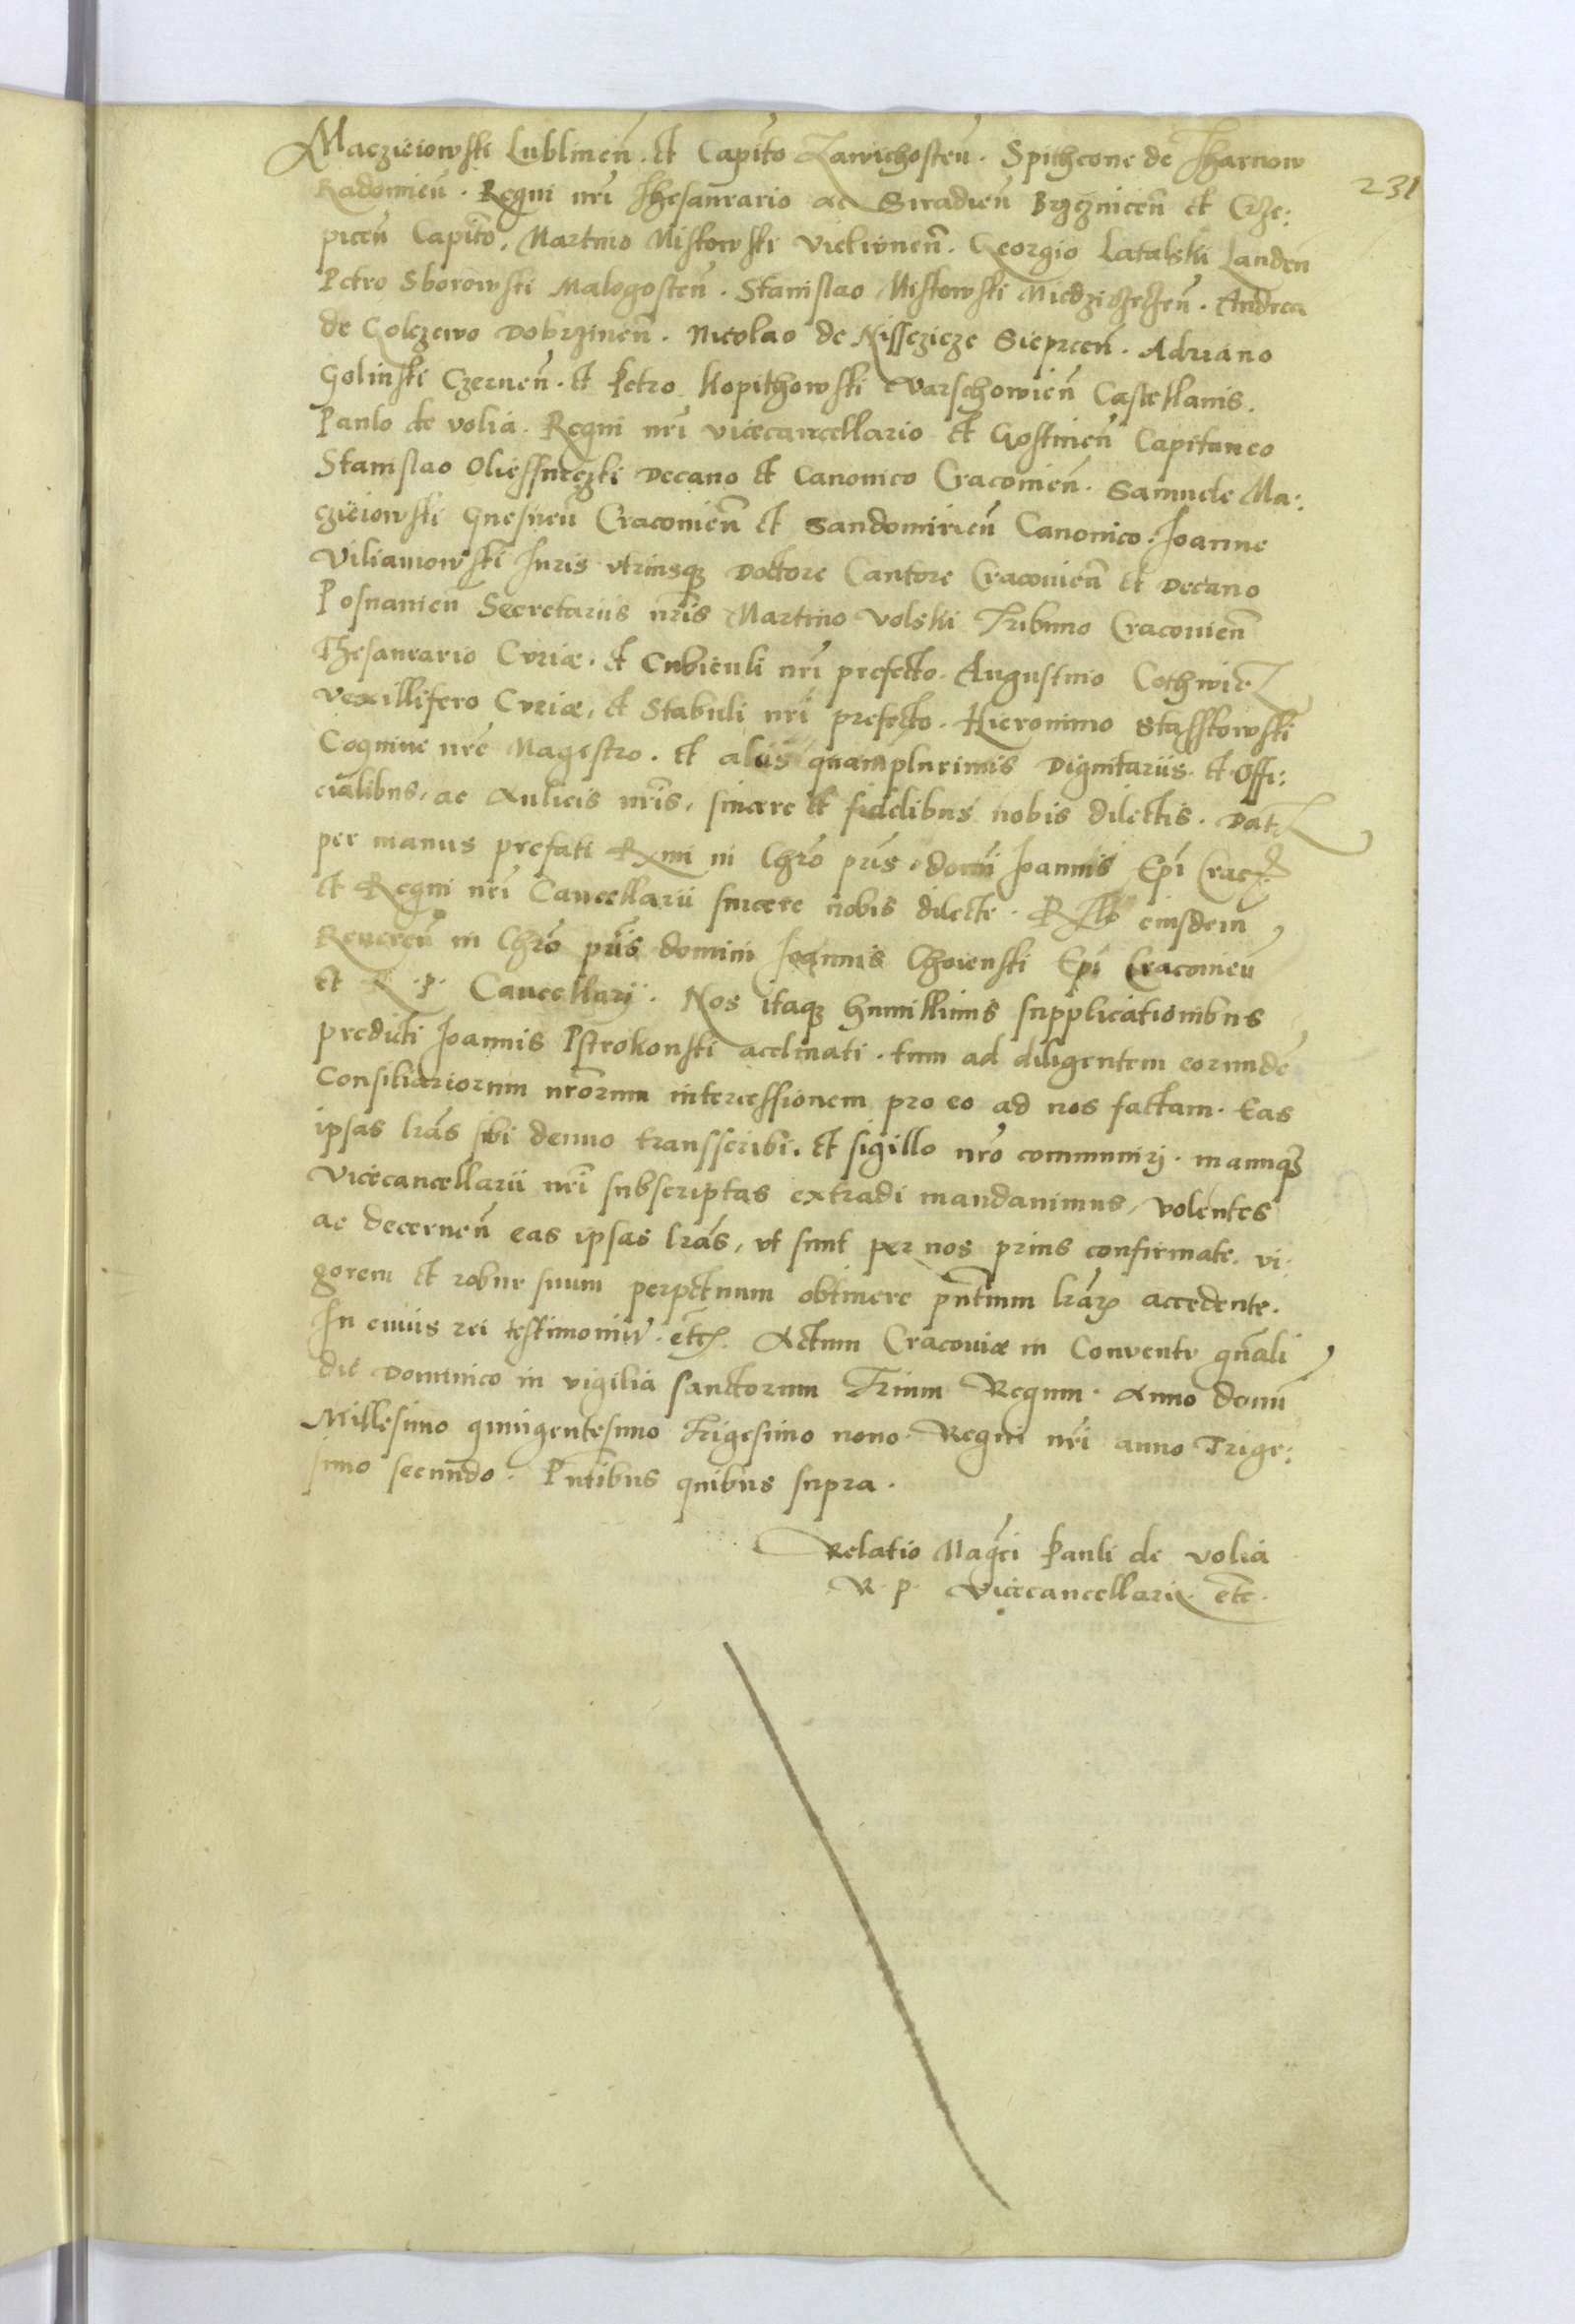 Maczieiowski Lublineñ. et Capito Zawichosteñ. Spithcone de Tharnow
231
Radomieñ. Regni nrí Thesaurario ac Siradieñ Brzezniceñ et Crze:
piceñ Capito. Martino Mistowski Vielunen. Georgio Latalski Landeñ
Petro Sborowski Malogosteñ. Stanislao Mistowski Miedzirzeczeñ. Andrea
de Golczewo Dobrzineñ. Nicolao de Nissczicze Siepreeñ. Adriano
Golinski Czerneñ. et Petro Kopithowski Warschowieñ Castellanis.
Paulo de Volia. Regni nrí vicecancellario et Gostineñ Capitaneo
Stanislao Oliessniczki Decano et Canonico Cracouieñ. Samuele Ma:
czieiowski Gnesneñ Cracouieñ et Sandomirieñ Canonico. Joanne
Viliamowski Juris vtriusq3 Doctore Cantore Cracouieñ et Decano
Posnanieñ Secretariis nrís Martino Volski Tribuno Cracouieñ
Thesaurario Curiæ. et Cubiculi nrí prefecto. Augustino Cothwicz
vexillifero Curiæ, et Stabuli nrí prefecto. Hieronimo Stasskowski
Coquine nré Magistro. et aliis quamplurimis Dignitariis et Offi:
cialibus, ac Aulicis nrís, sincere et fidelibus nobis dilectis. Dat
per manus prefati Rxmi in Chró prís domi Joannis Epí Crac
et Regni nrí Cancellarii sincere nobis dilecte. Rllo eiusdem
Reuereñ in Chró prís domini Joannis Choienski Epí Cracouieñ
et R. P. Cancellarij. Nos itaq3 humillimis supplicationibus
predicti Joannis Pstrokonski acclinati. tum ad diligentem eorundé
Consiliariorum nrorum intercessionem pro eo ad nos factam. Eas
ipsas lrás sibi denuo transscribi. et sigillo nró communirj. manuq3
Vicecancellarii nrí subscriptas extradi mandauimus, Volentes
ac decerneñ eas ipsas lrás, vt sunt per nos prius confirmate. vi:
gorem et robur suum perpetuum obtinere pñtium lrár accedente.
In cuius rei testimoniũ. etc. Actum Cracouiæ in Conventu gñali
die Dominico in vigilia sanctorum Trium Regum. Anno domi
Millesimo quingentesimo Trigesimo nono. Regni nrí anno Trige:
simo secundo. Pñtibus quibus supra.
Relatio Magci Pauli de Volia
R. P. Vicecancellarij. etc.